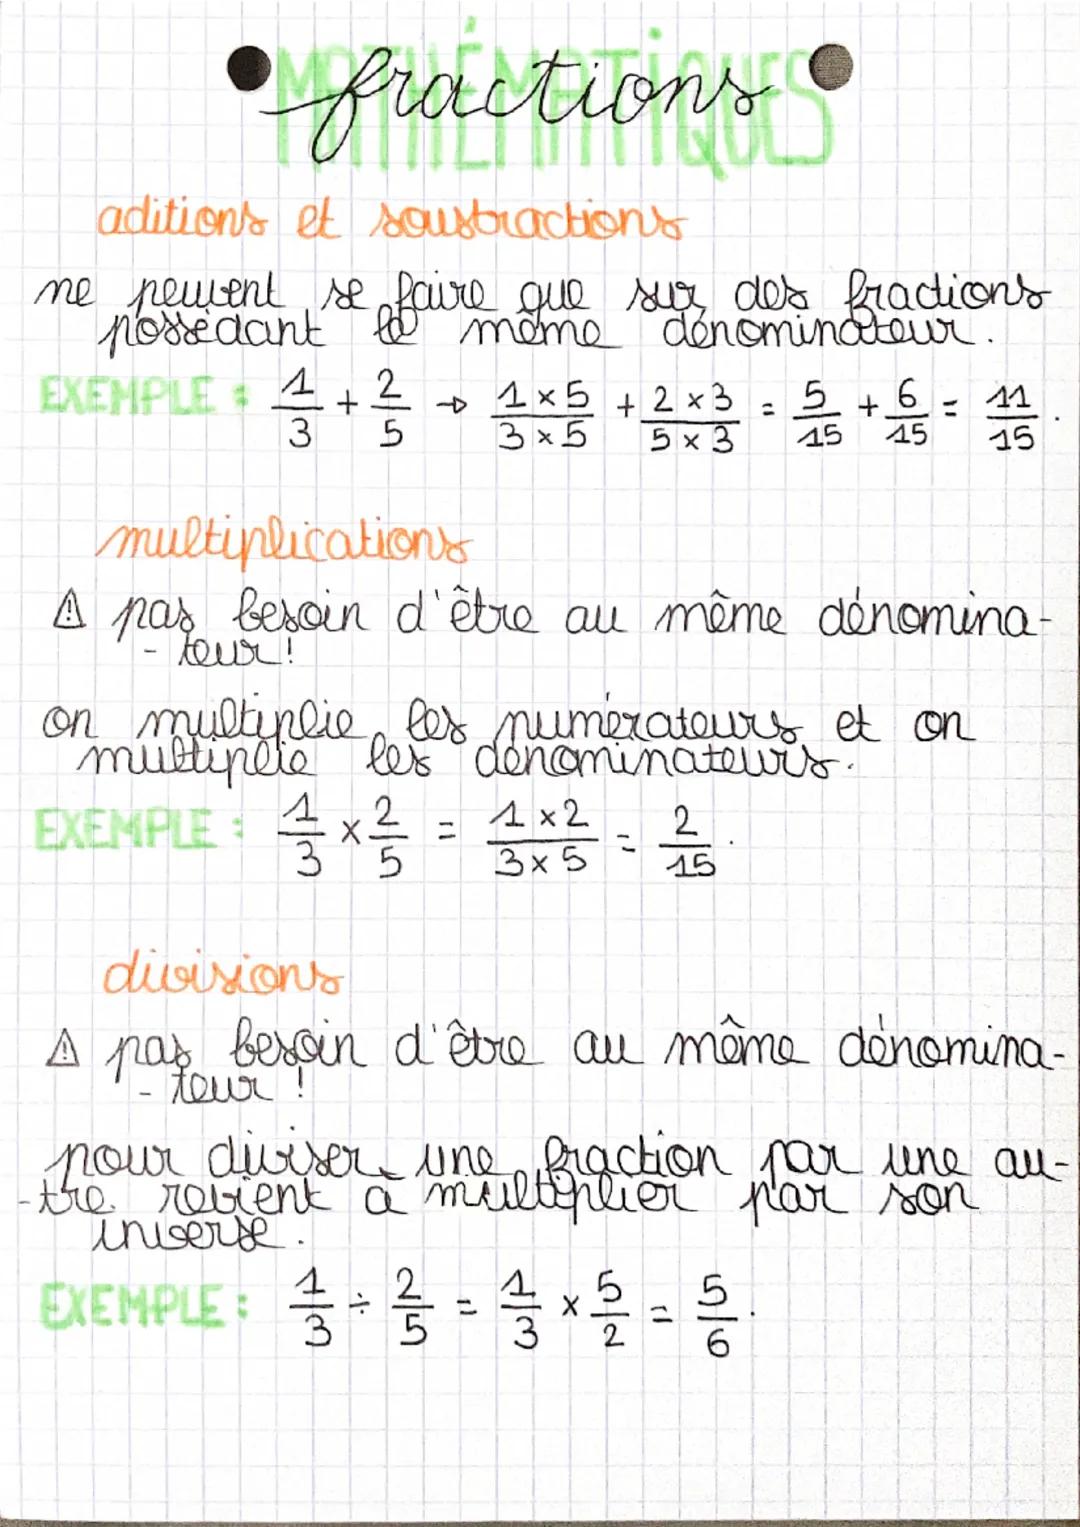 MATHÉMATIQUES
fractions
aditions et soustractions
ne peuvent se faire que sur des fractions
possédant le même dénominateur.
EXEMPLE : 1/3 + 2/5 → 1 × 5/3 × 5 + 2 × 3/5 × 3 = 5/15 + 6/15 = 11/15.
multiplications
⚠ pas besoin d'être au même dénomina-
- teur !
on multiplie les numérateurs et on
multiplie les dénominateurs.
EXEMPLE : 1/3 × 2/5 = 1 × 2/3 × 5 = 2/15.
divisions
⚠ pas besoin d'être au même dénomina-
- teur !
pour diviser une fraction par une au-
-tre revient à multiplier par son
inverse.
EXEMPLE : 1/3 ÷ 2/5 = 1/3 × 5/2 = 5/6.